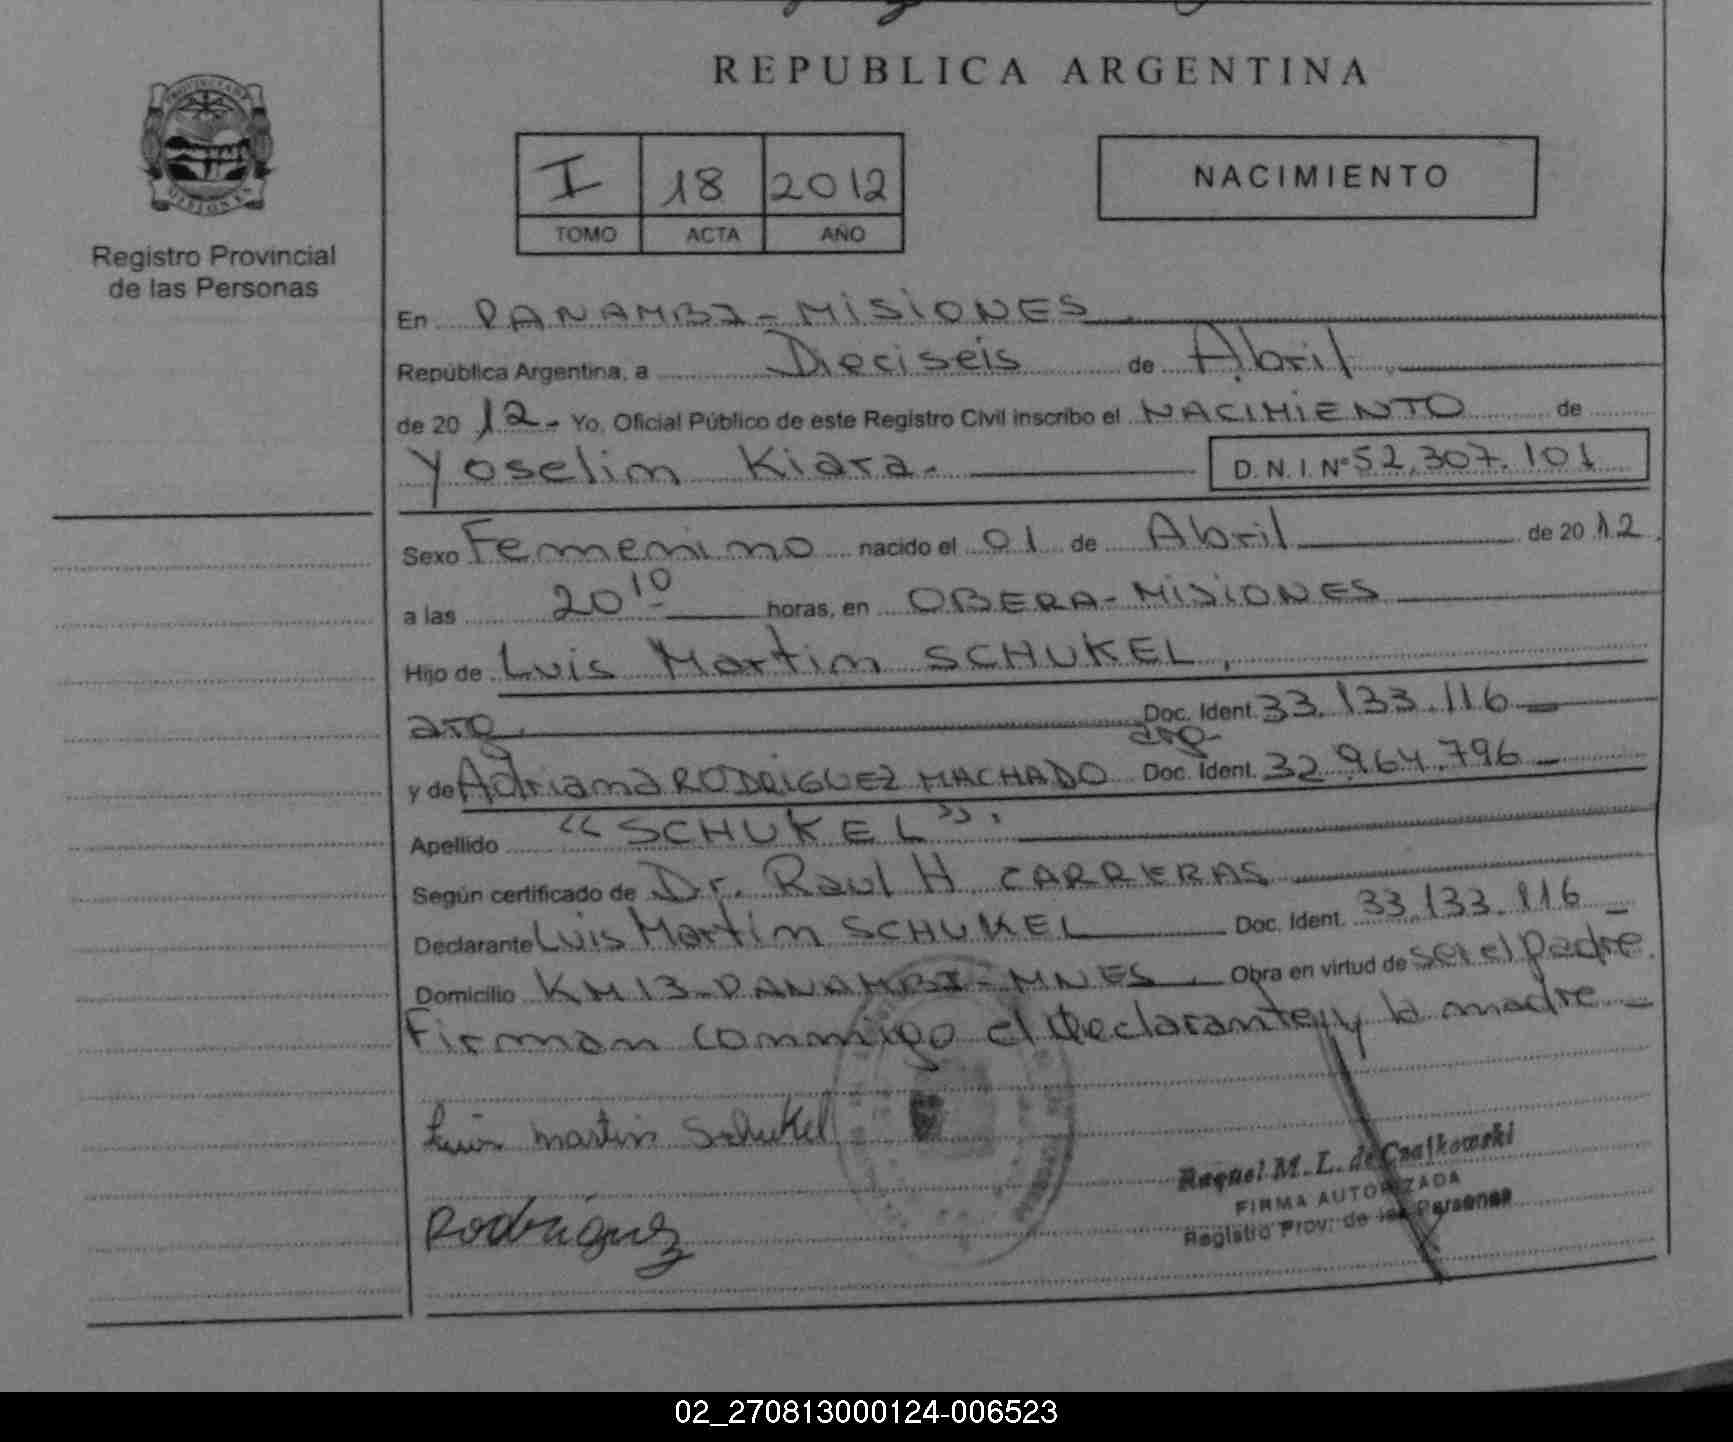 REPUBLICA ARGENTINA
I 18 2012
TOMO ACTA AÑO
NACIMIENTO
Registro Provincial
de las Personas
En PANAMBI - MISIONES
República Argentina, a Dieciseis de Abril
de 20 12.- Yo, Oficial Público de este Registro Civil inscribo el NACIMIENTO de
Yoselin Kiara.
D.N.I. Nº 52.307.101
Sexo Femenino nacido el 01 de Abril de 20 12
a las 20 10 horas, en OBERA - MISIONES
Hijo de Luis Martin SCHUKEL,
arg. Doc. Ident. 33.133.116
arg.
y de Adriana RODRIGUEZ MACHADO Doc. Ident. 32.964.796
Apellido "SCHUKEL".
Según certificado de Dr. Raul H CARRERAS
Declarante Luis Martin SCHUKEL Doc. Ident. 33.133.116
Domicilio KM 13 - PANAMBI - MNES. Obra en virtud de ser el padre.
Firman conmigo el declarante y la madre
Luis martin Schukel
Raquel M. L. de Czajkowski
FIRMA AUTORIZADA
Registro Prov. de las Personas
Rodriguez
02_270813000124-006523